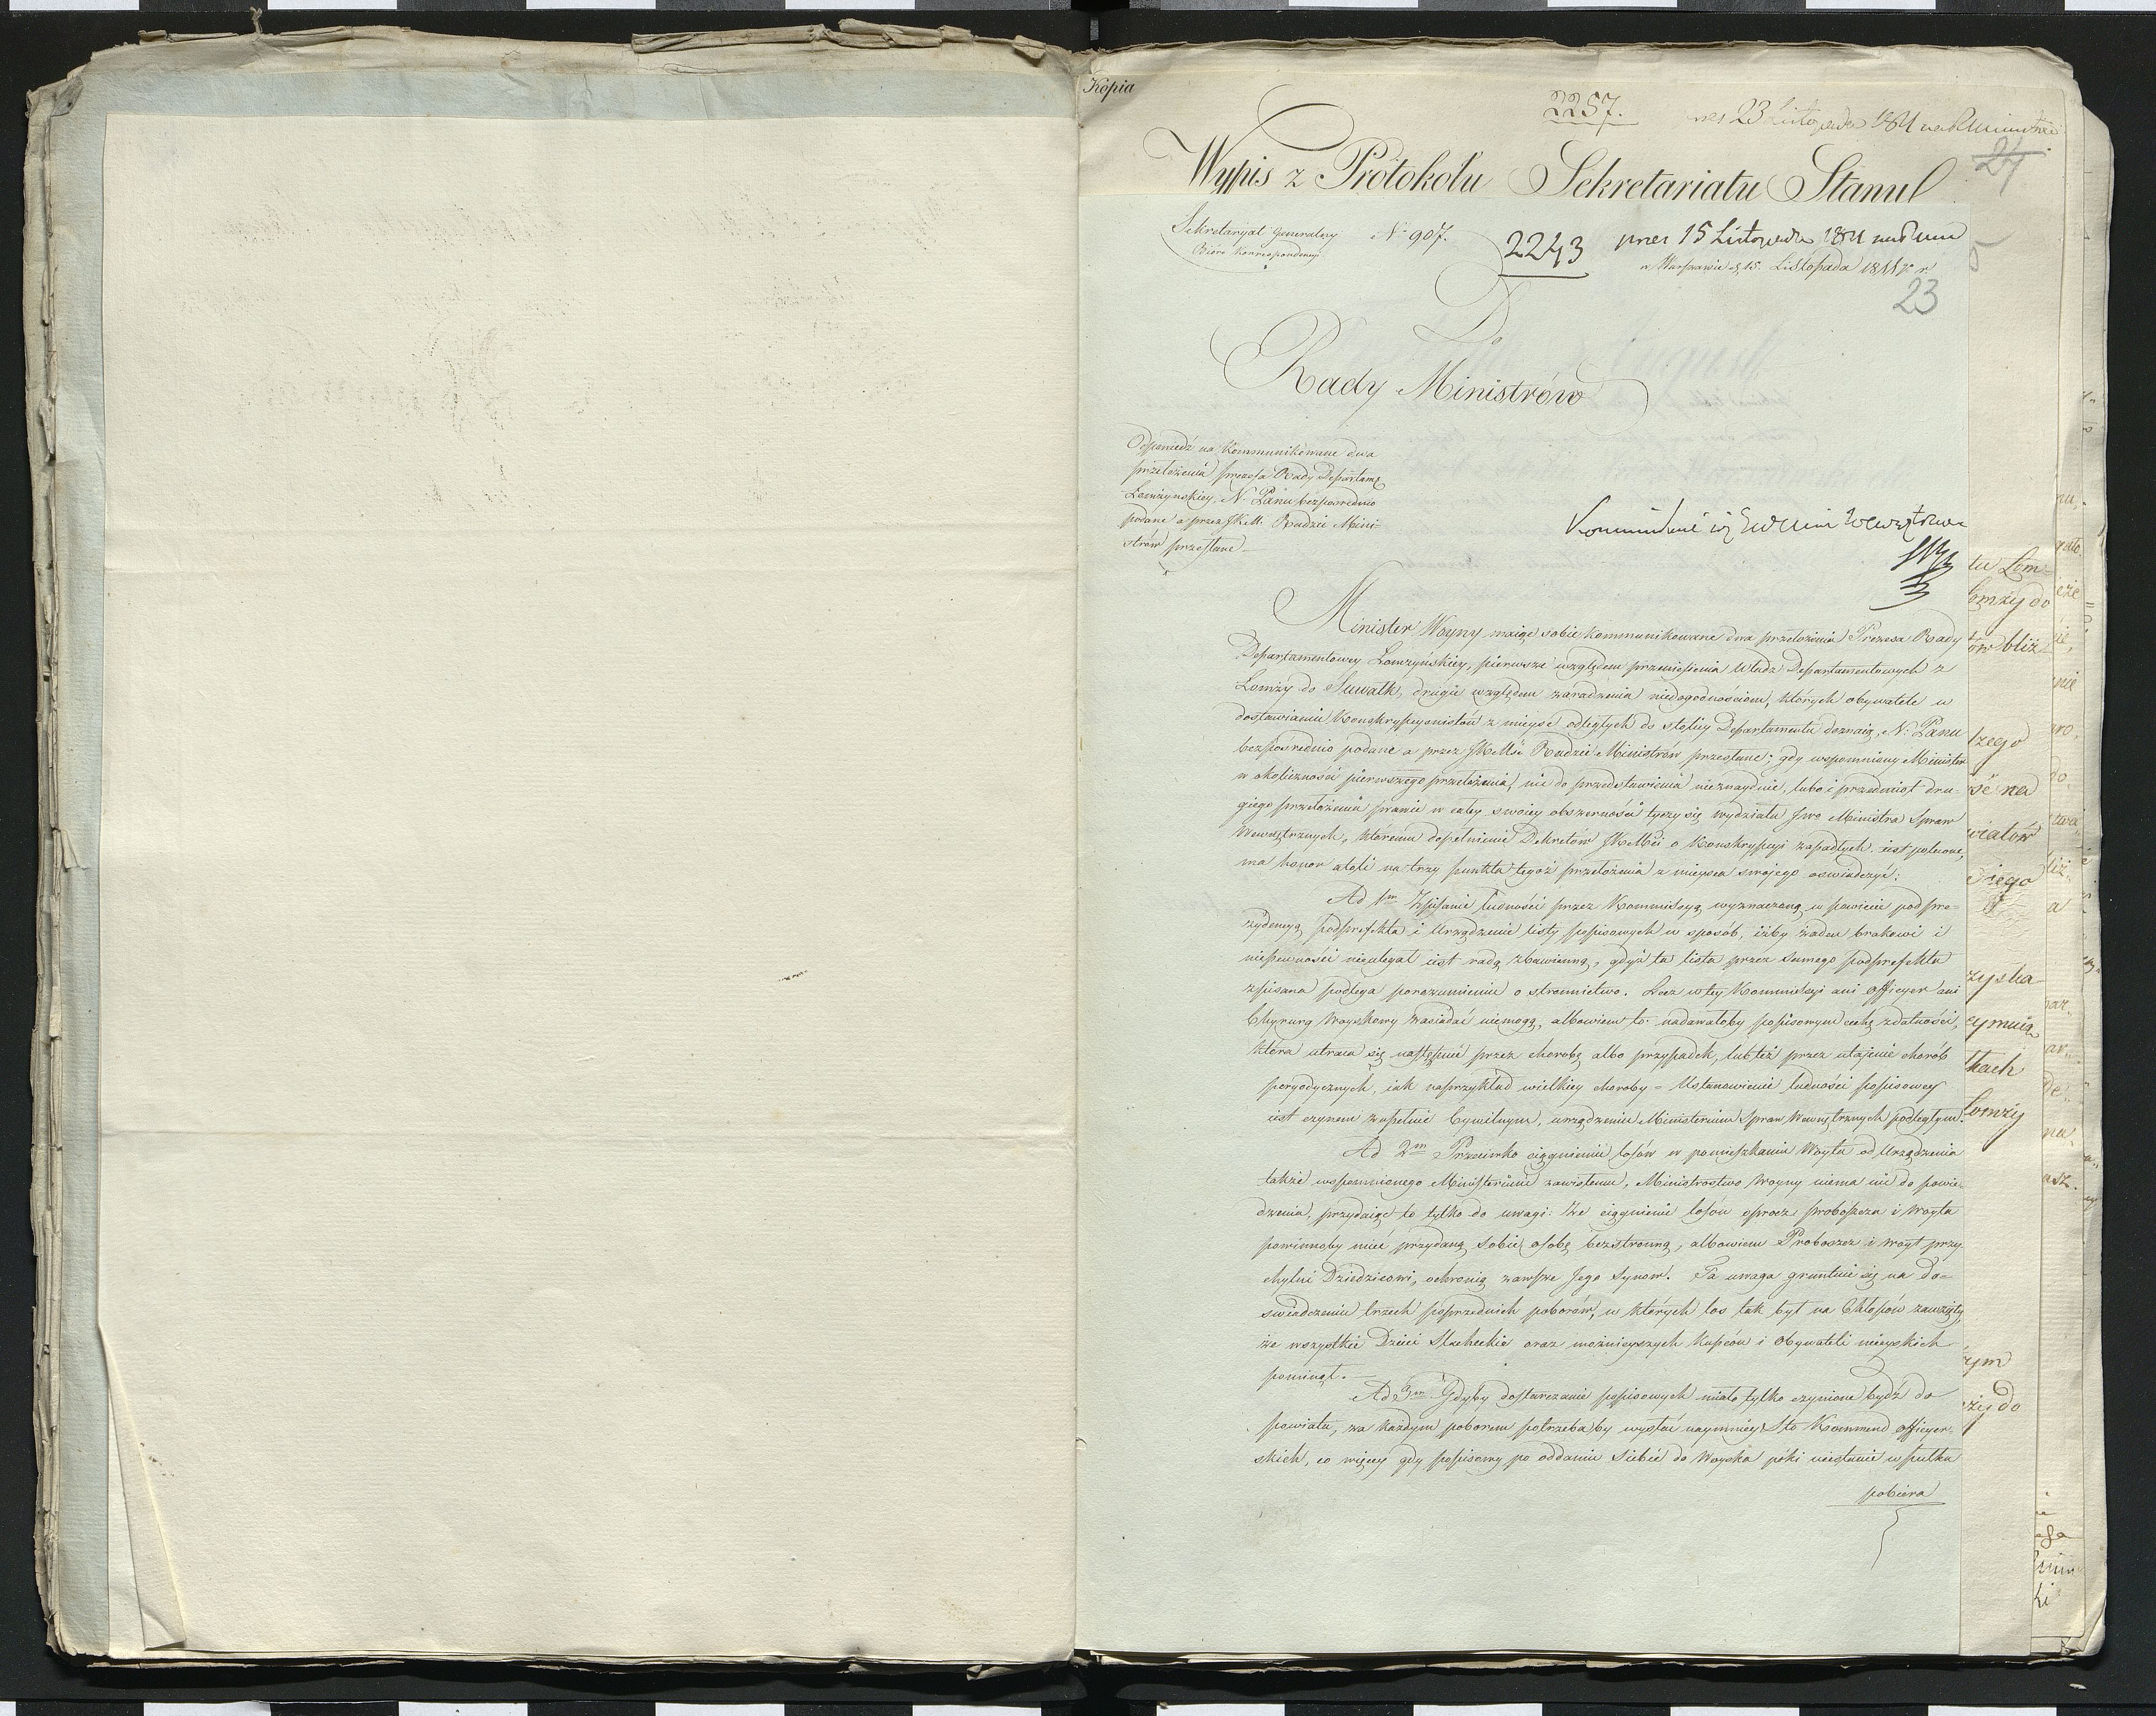 Kopia
2257.
23 Listopada 1811
Wypis z Protokołu Sekretariatu Stanu
24
Sekretaryat Generalny
Bióro Korrespondencyi
N. 907.
2243
prez 15 Listopada 1811
w Warszawie d. 15. Listopada 1811 r.
23
Do
Rady Ministrów
Odpowiedź na kommunikowane dwa
przełożenia prezesa Rady Departam:
Łomżyńskiey, N. Panu bezpośrednio
podane a przez JKM. Radzie Mini-
strów przesłane
Minister Woyny maiąc sobie kommunikowane dwa przełożenia Prezesa Rady
Departamentowey Łomżyńskiey, pierwsze względem przeniesienia Władz Departamentowych z
Łomży do Suwałk, drugie względem zaradzenia niedogodnościom, których obywatele w
dostawianiu Konskrypcyonistów z mieysc odległych do stolicy Departamentu doznaią, N: Panu
bezpośrednio podane a przez JKMć Radzie Ministrów przesłane; gdy wspomniony Minister
w okoliczności pierwszego przełożenia, nic do przedstawienia nieznayduie, lubo i przedmiot dru-
giego przełożenia prawie w całey swoiey obszerności tyczy się wydziału Jwo Ministra Spraw
Wewnętrznych, któremu dopełnienie Dekretów JKMći o Konskrypcyi zapadłych iest polecone,
ma honor atoli na trzy punkta tegoż przełożenia z mieysca swojego oswiadczyć:
Ad 1m Zpisanie ludności przez Kommissyą wyznaczoną w powiecie pod pre-
zydencyą podprefekta i Urządzenie listy popisowych w sposób, iżby żaden brakowi i
niepewności nieulegał iest radą zbawienną, gdyż ta lista przez samego podprefekta
zpisana podlega porozumieniu o stronnictwo. Lecz w tey Kommissyi ani Officyer ani
Chyrurg Woyskowy zasiadać niemogą, albowiem to nadawałoby popisowym cechę zdatności,
która utraca się następnie przez chorobę albo przypadek, lub też przez utajenie chorób
peryodycznych, iak naprzykład wielkiey choroby = Ustanowienie ludności popisowey
iest czynem zupełnie Cywilnym, urządzeniu Ministerium Spraw Wewnętrznych podległym.
Ad 2m Przeciwko ciągnieniu losów w pomieszkaniu Woyta od Urządzenia
także wspomnionego Ministerium zawisłemu, Ministerstwo Woyny niema nic do powie-
dzenia, przydaiąc to tylko do uwagi: Że ciągnienie losów oprócz proboszcza i Woyta
powinnoby mieć przydaną sobie osobę bezstronną, albowiem Proboszcz i Woyt przy-
chylni Dziedzicowi, ochronią zawsze Jego Synow. Ta uwaga gruntuie się na do-
swiadczeniu trzech poprzednich poborów, w których los tak był na Chłopów zawzięty,
że wszystkie Dzieci Szlacheckie oraz możnieyszych Kupców i Obywateli mieyskich
pominął.
Ad 3m Gdyby dostarczanie popisowych miało tylko czynione bydź do
powiatu, za każdym poborem potrzeba by wysłać naymniey Sto Kommend officyer-
skich, co więcey gdy popisowy po oddaniu Siebie do Woyska póki niestanie w pułku
pobiera